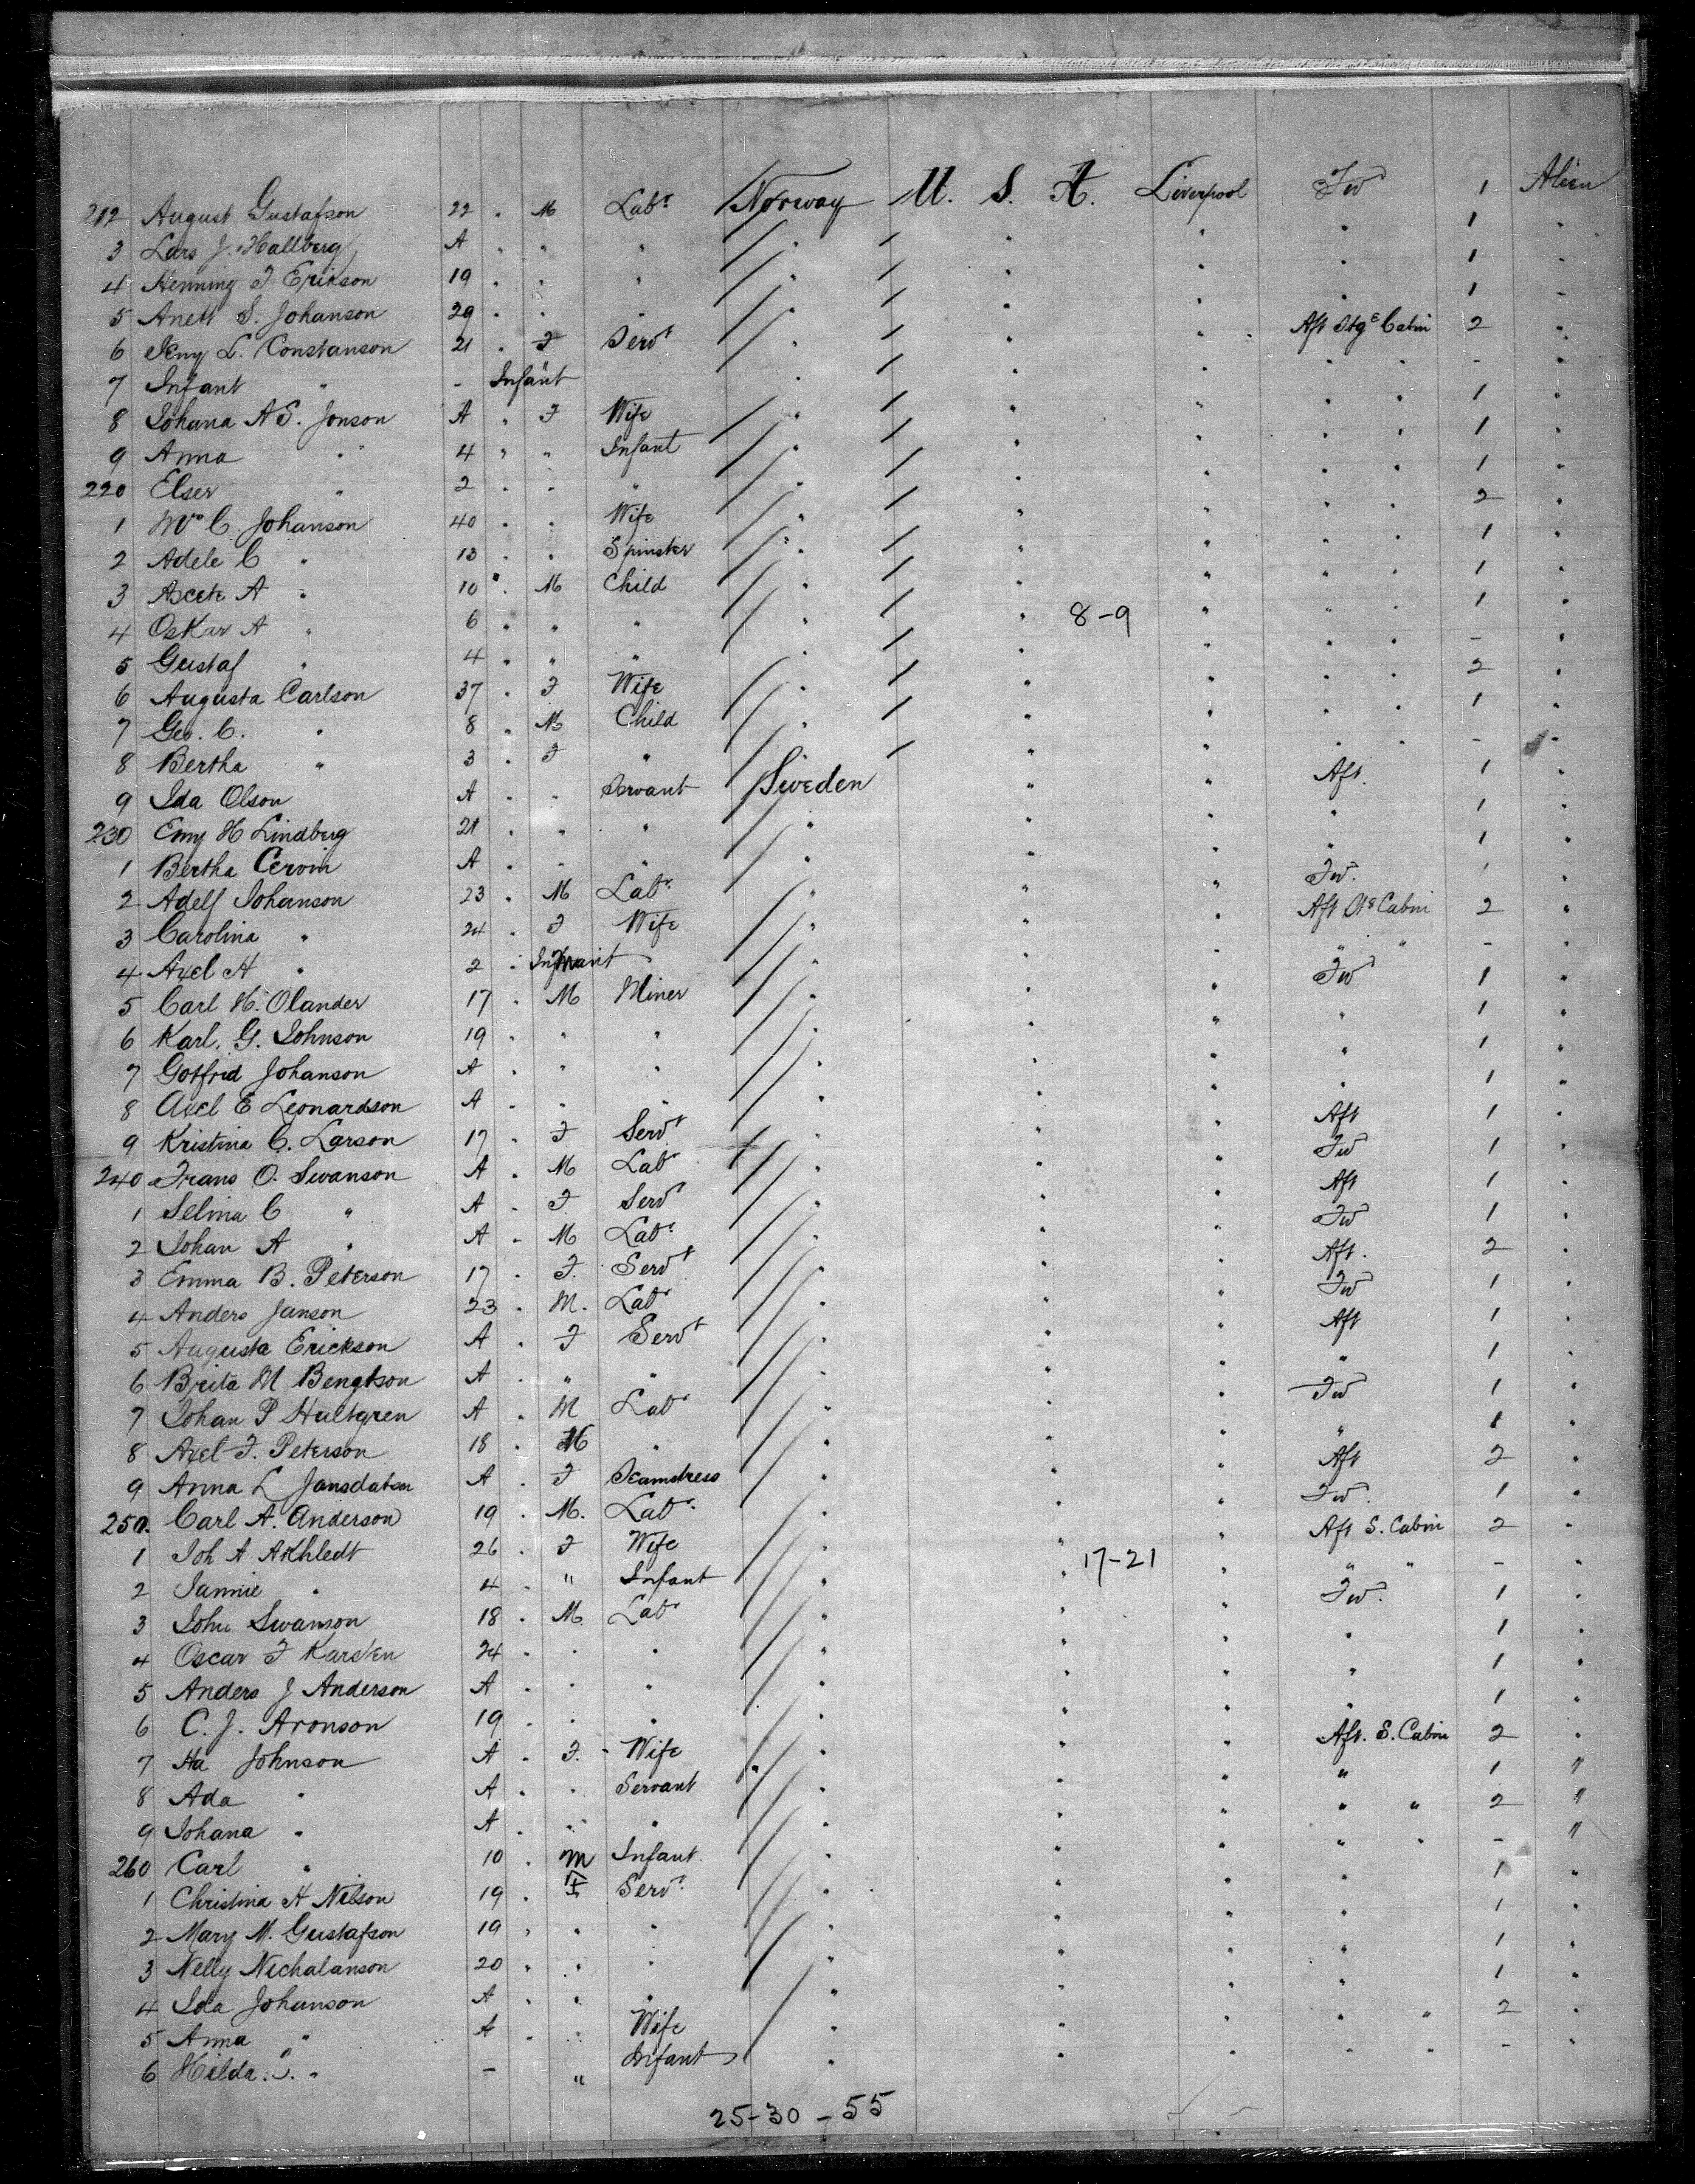 212 August Gustafson 22 " M Labr Norway U. S. A. Liverpool Fwd 1 Alien
3 Lars J. Hallberg A " " " " " " " 1 "
4 Henning F Erikson 19 " " " " " " " 1 "
5 Anett S. Johanson 29 " " " " " " " 1 "
6 Jeny L. Constanson 21 " F Servt " " " Aft Stge Cabin 2 "
7 Infant " - Infant " " " " " - "
8 Johana A S. Jonson A " F Wife " " " " " 1 "
9 Anna " 4 " " Infant " " " " " 1 "
220 Elser " 2 " " " " " " " " 1 "
1 Mrs C. Johanson 40 " " Wife " " " " " 2 "
2 Adele C " 13 " " Spinster " " " " " 1 "
3 Ascete A " 10 " M Child " " " " " 1 "
4 Oskar A " 6 " " " " " 8-9 " " " 1 "
5 Gustaf " 4 " " " " " " " " - "
6 Augusta Carlson 37 " F Wife " " " " " 2 "
7 Geo. C. " 8 " M Child " " " " " 1 "
8 Bertha " 3 " F " " " " " " - "
9 Ida Olson A " " Servant Sweden " " Aft. 1 "
230 Emy H Lindberg 21 " " " " " " " 1 "
1 Bertha Cervin A " " " " " " " 1 "
2 Adelf Johanson 23 " M Labr " " " Fwd. 1 "
3 Carolina " 24 " F Wife " " " Aft Cabin 2 "
4 Axel H " 2 " Infant " " " " " - "
5 Carl H. Olander 17 " M Miner " " " Fwd 1 "
6 Karl. G. Johnson 19 " " " " " " " 1 "
7 Gotfrid Johanson A " " " " " " " 1 "
8 Axel E Leonardson A " " " " " " " 1 "
9 Kristina C. Larson 17 " F Servt " " " Aft 1 "
240 Frans O. Swanson A " M Labr " " " Fwd 1 "
1 Selma C " A " F Servt " " " Aft 1 "
2 Johan A " A " M Labr " " " Fwd 1 "
3 Emma B. Peterson 17 " F. Servt " " " Aft. 2 "
4 Anders Janson 23 " M. Labr " " " Fwd 1 "
5 Augusta Erickson A " F Servt " " " Aft 1 "
6 Brita M Bengtson A " " " " " " " 1 "
7 Johan P Hultgren A " M Labr " " " Fwd 1 "
8 Axel F. Peterson 18 " M " " " " " 1 "
9 Anna L Jansdatson A " F Seamstress " " " Aft 2 "
250. Carl A. Anderson 19 " M. Labr " " " Fwd. 1 "
1 Joh A Akhledt 26 " F Wife " " " Aft S. Cabin 2 "
2 Jannie " 4 " " Infant " " 17-21 " " " - "
3 John Swanson 18 " M. Labr " " " Fwd. 1 "
4 Oscar F Karsten 24 " " " " " " " 1 "
5 Anders J Anderson A " " " " " " " 1 "
6 C. J. Aronson 19 " " " " " " " 1 "
7 Ha Johnson A " F. Wife " " " Aft. S. Cabin 2 "
8 Ada " A " " Servant " " " " 1 "
9 Johana " A " " " " " " " " 2 "
260 Carl " 10 " M Infant. " " " " " - "
1 Christina A Nelson 19 " F Servt " " " " 1 "
2 Mary M. Gustafson 19 " " " " " " " 1 "
3 Nelly Nichalanson 20 " " " " " " " 1 "
4 Ida Johanson A " " " " " " " 1 "
5 Anna " A " " Wife " " " " " 2 "
6 Hilda. S. " - " Infant " " " " " - "
25-30-55